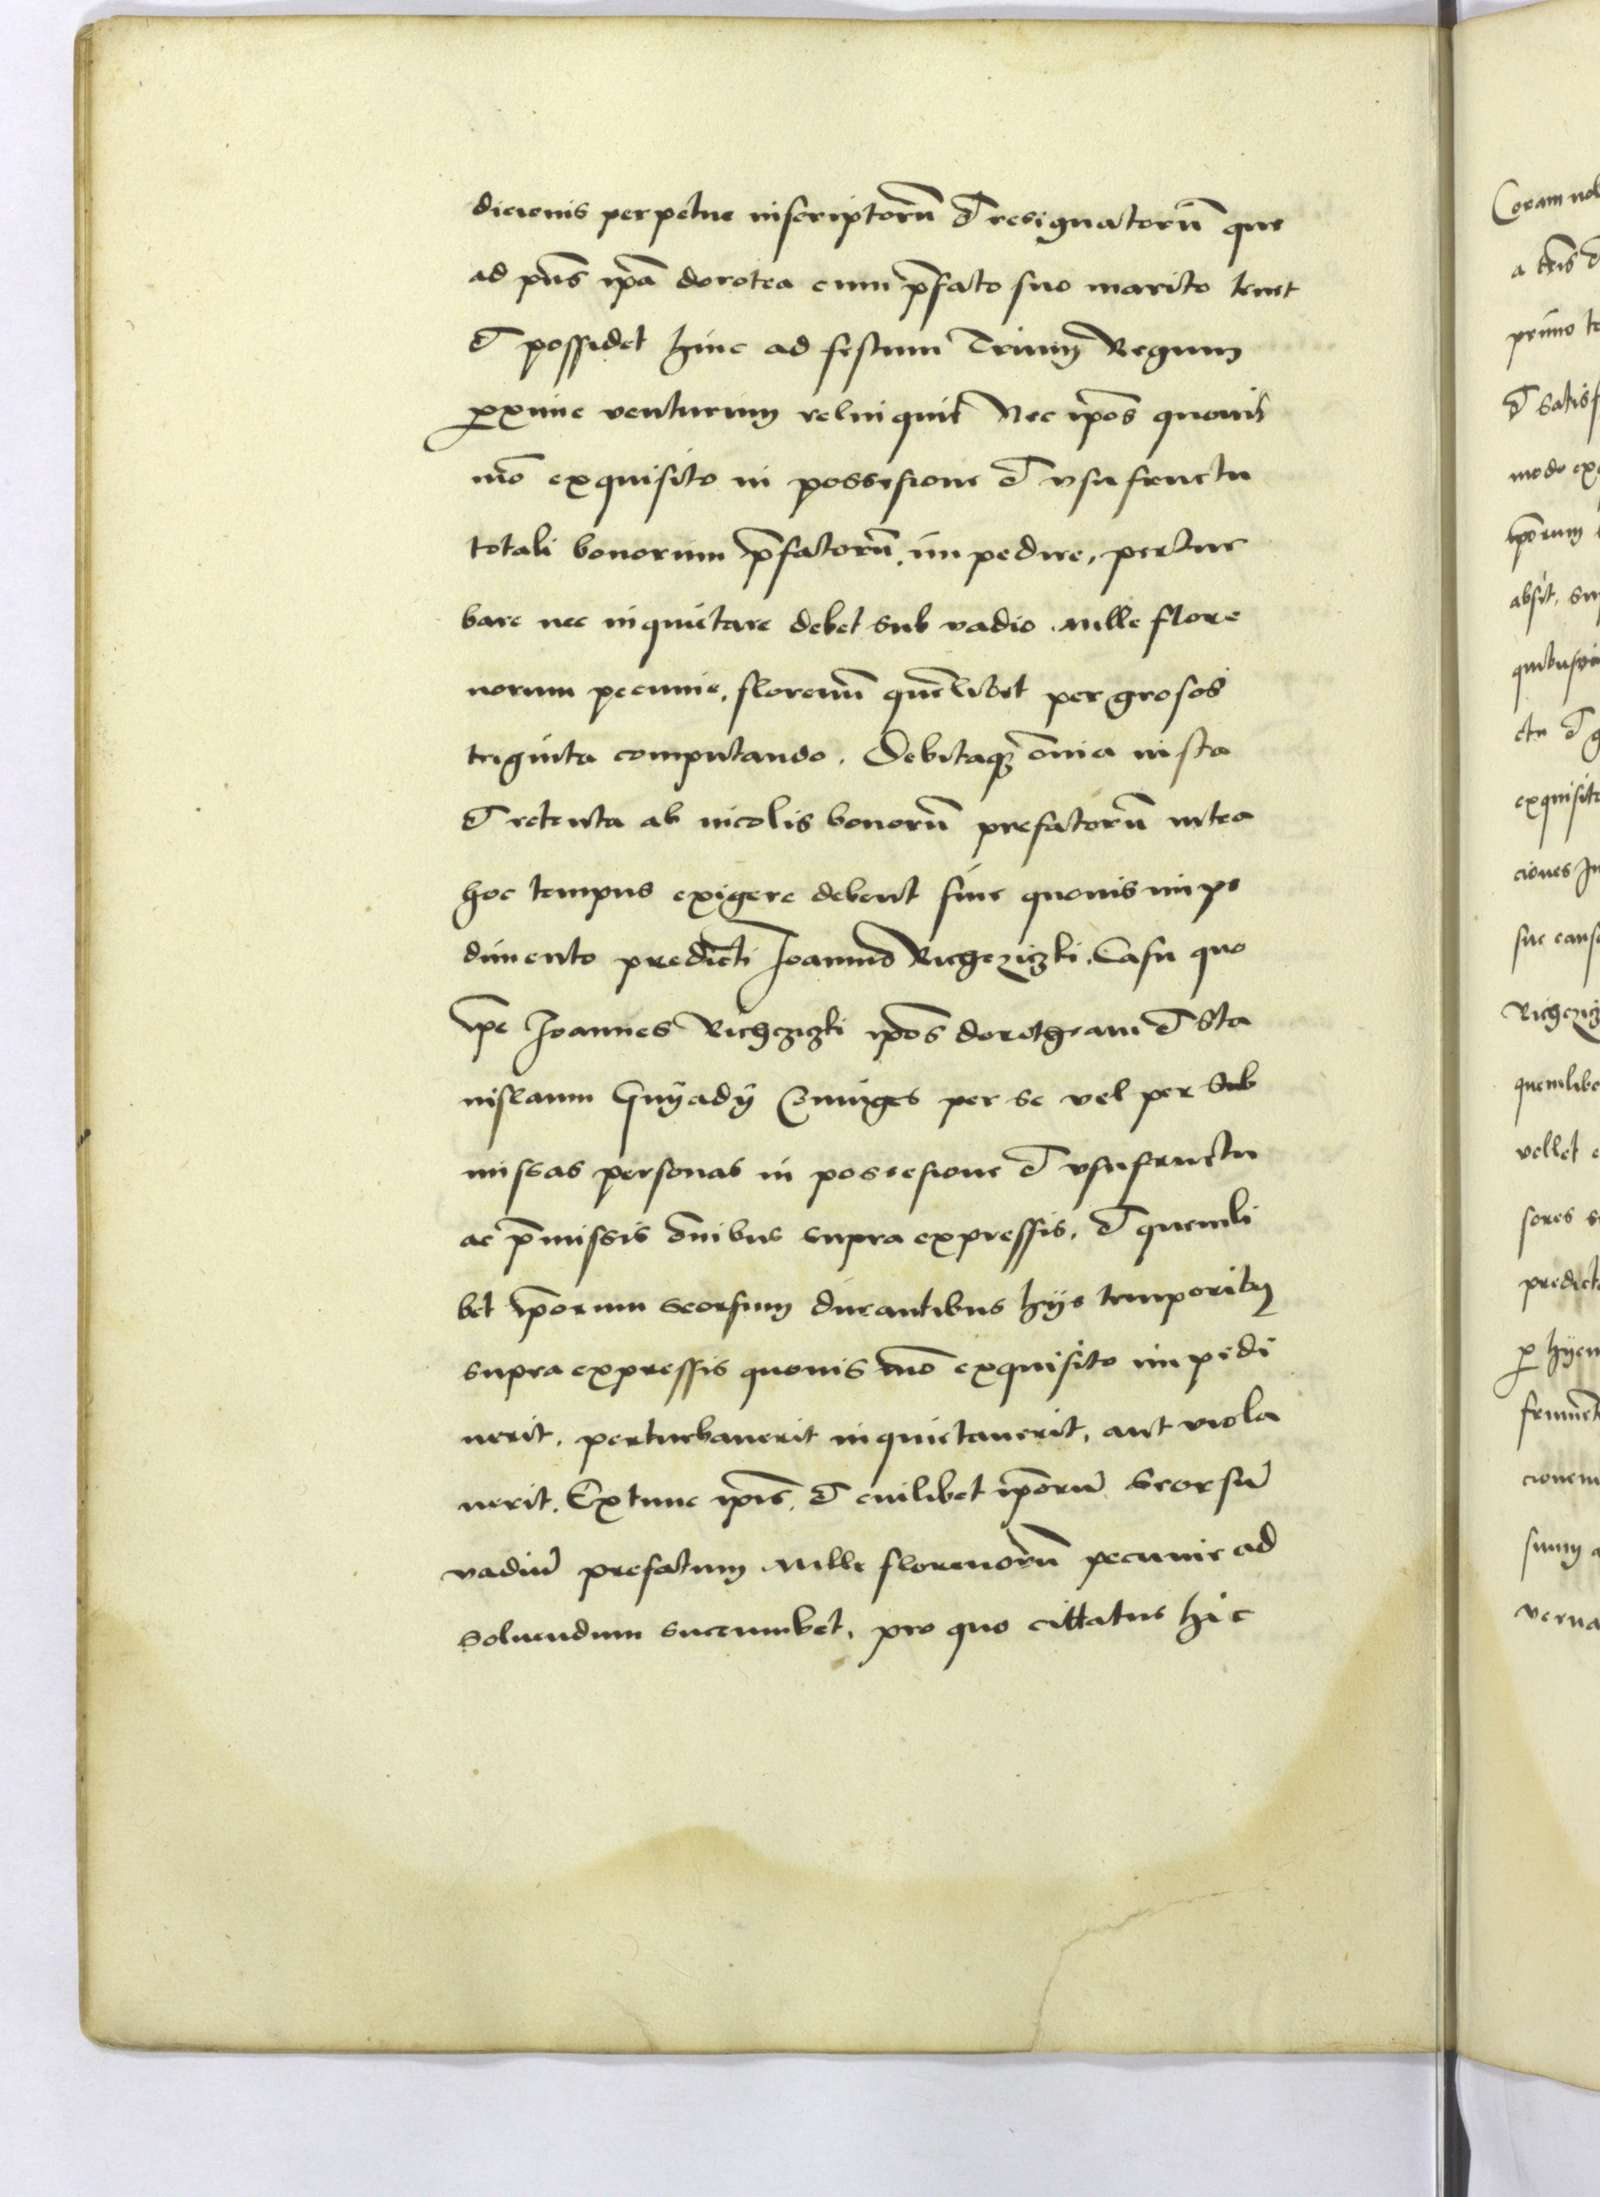 dicionis perpetue inscriptorū et resignatorū que
ad pn̄s ip̄a dorotea cum p̄fato suo marito tenet
et possidet hinc ad festum Trium Regum
proxime venturum relinquit Nec ip̄os quovis
mō exquisito in possesione et vsufructu
totali bonorum p̄fatorū, impedire, pertur
bare nec inquietare debet sub vadio Mille flore
norum pecunie, florenū quēlibet per grosos
triginta computando. Debitaqȝ om̄ia iusta
et retenta ab incolis bonorū prefatorū intra
hoc tempus exigere debent sine quovis impe
dimento predicti Joannis Richcziczki. Casu quo
ip̄e Joannes Richcziczki ip̄os dorotheam et Sta
nislaum Gnÿadÿ Coniuges per se vel per sub
missas personas in possesione et vsufructu
ac p̄missis om̄ibus supra expressis, et quemli
bet ip̄orum seorsum durantibus hijs temporibȝ
supra expressis quovis mō exquisito impedi
uerit, perturbauerit inquietauerit, aut viola
uerit. Extunc ip̄is, et cuilibet ip̄orū seorsū
vadiū prefatum Mille florenorū pecunie ad
soluendum succumbet, pro quo cittatus hic
Coram nob
primo te
et satisf
modo ex
ip̄orum
absit, su
et g
exquisito
ciones In
sue caus
quemlibe
vellet
sores s
predict
cionem
suum
verna